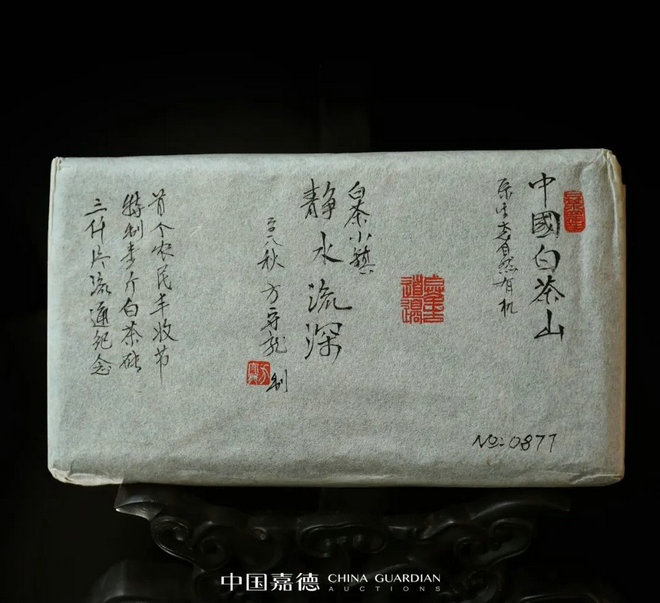 中國白茶山
自然有机
白茶小鎮
静水流深
八秋 方守龙 制
首个农民丰收节
特制斤白茶砖
三仟片流通纪念
No:0877
中国嘉德 CHINA GUARDIAN
AUCTIONS